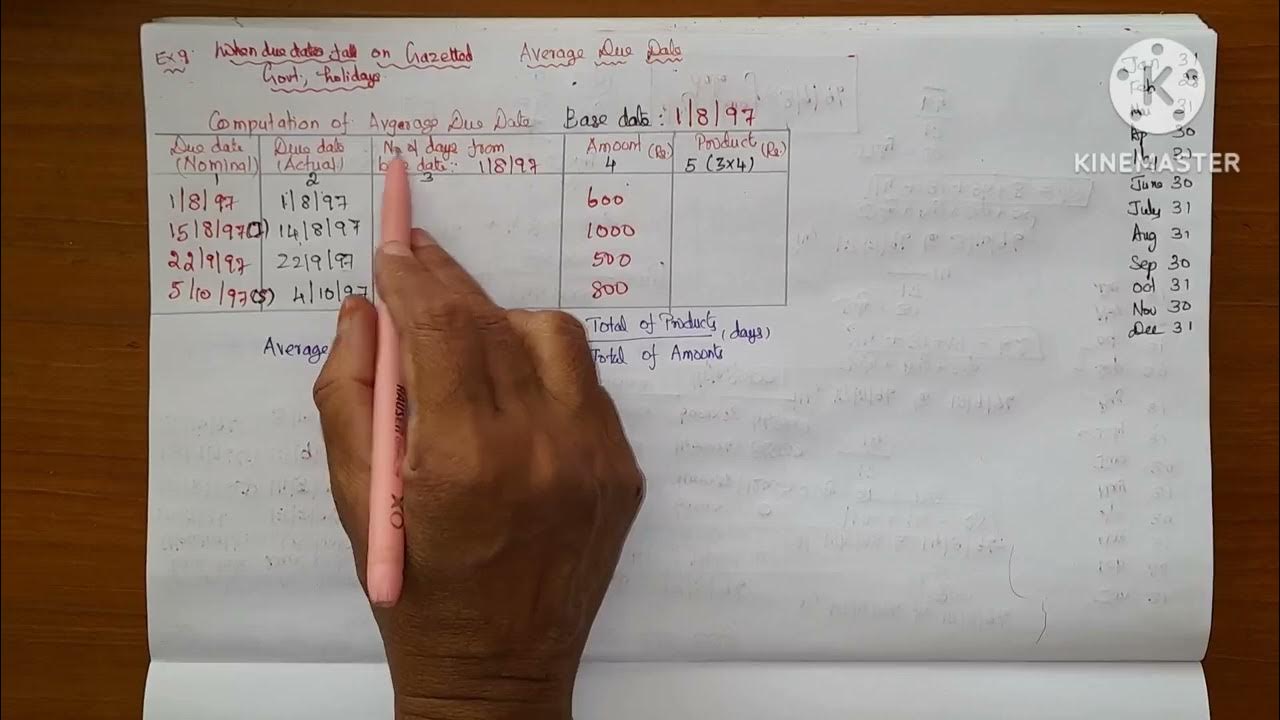 Ex 9. When due dates fall on Gazetted Average Due Date
Govt., holidays
Computation of Average Due Date Base date : 1/8/97
Due date (Nominal) 1
Due date (Actual) 2
No of days from base date :: 1/8/97 3
Amount (Rs.) 4
Product (Rs.) 5 (3x4)
1/8/97 1/8/97 600
15/8/97 14/8/97 1000
22/9/97 22/9/97 500
5/10/97(S) 4/10/97 800
Average
Total of Products (days)
Total of Amounts
Jan 31
Feb 28
31
Ap 30
31
June 30
July 31
Aug 31
Sep 30
Oct 31
Nov 30
Dec 31
K
KINEMASTER
HAUSER
XO